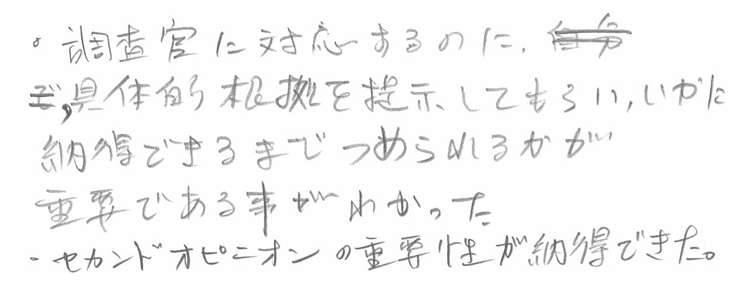 。調査官に対応するのに、自分
で、具体的根拠を提示してもらい、いかに
納得できるまでつめられるかが
重要である事がわかった
・セカンドオピニオンの重要性が納得できた。